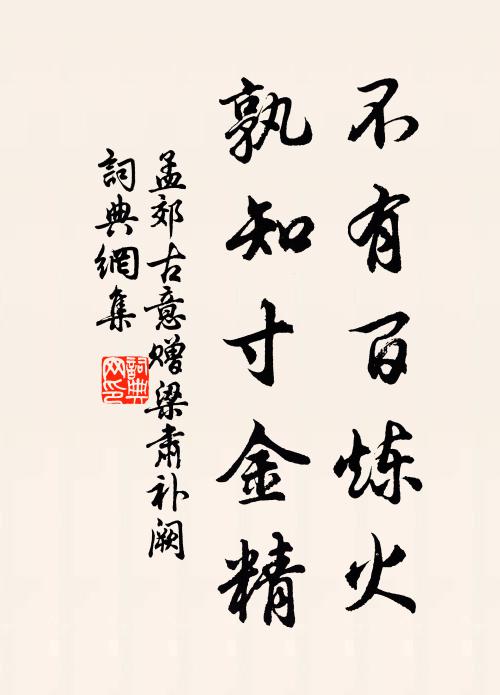 不有百炼火
孰知寸金精
孟郊古意赠梁肃补阙
詞典網集
詞典网印